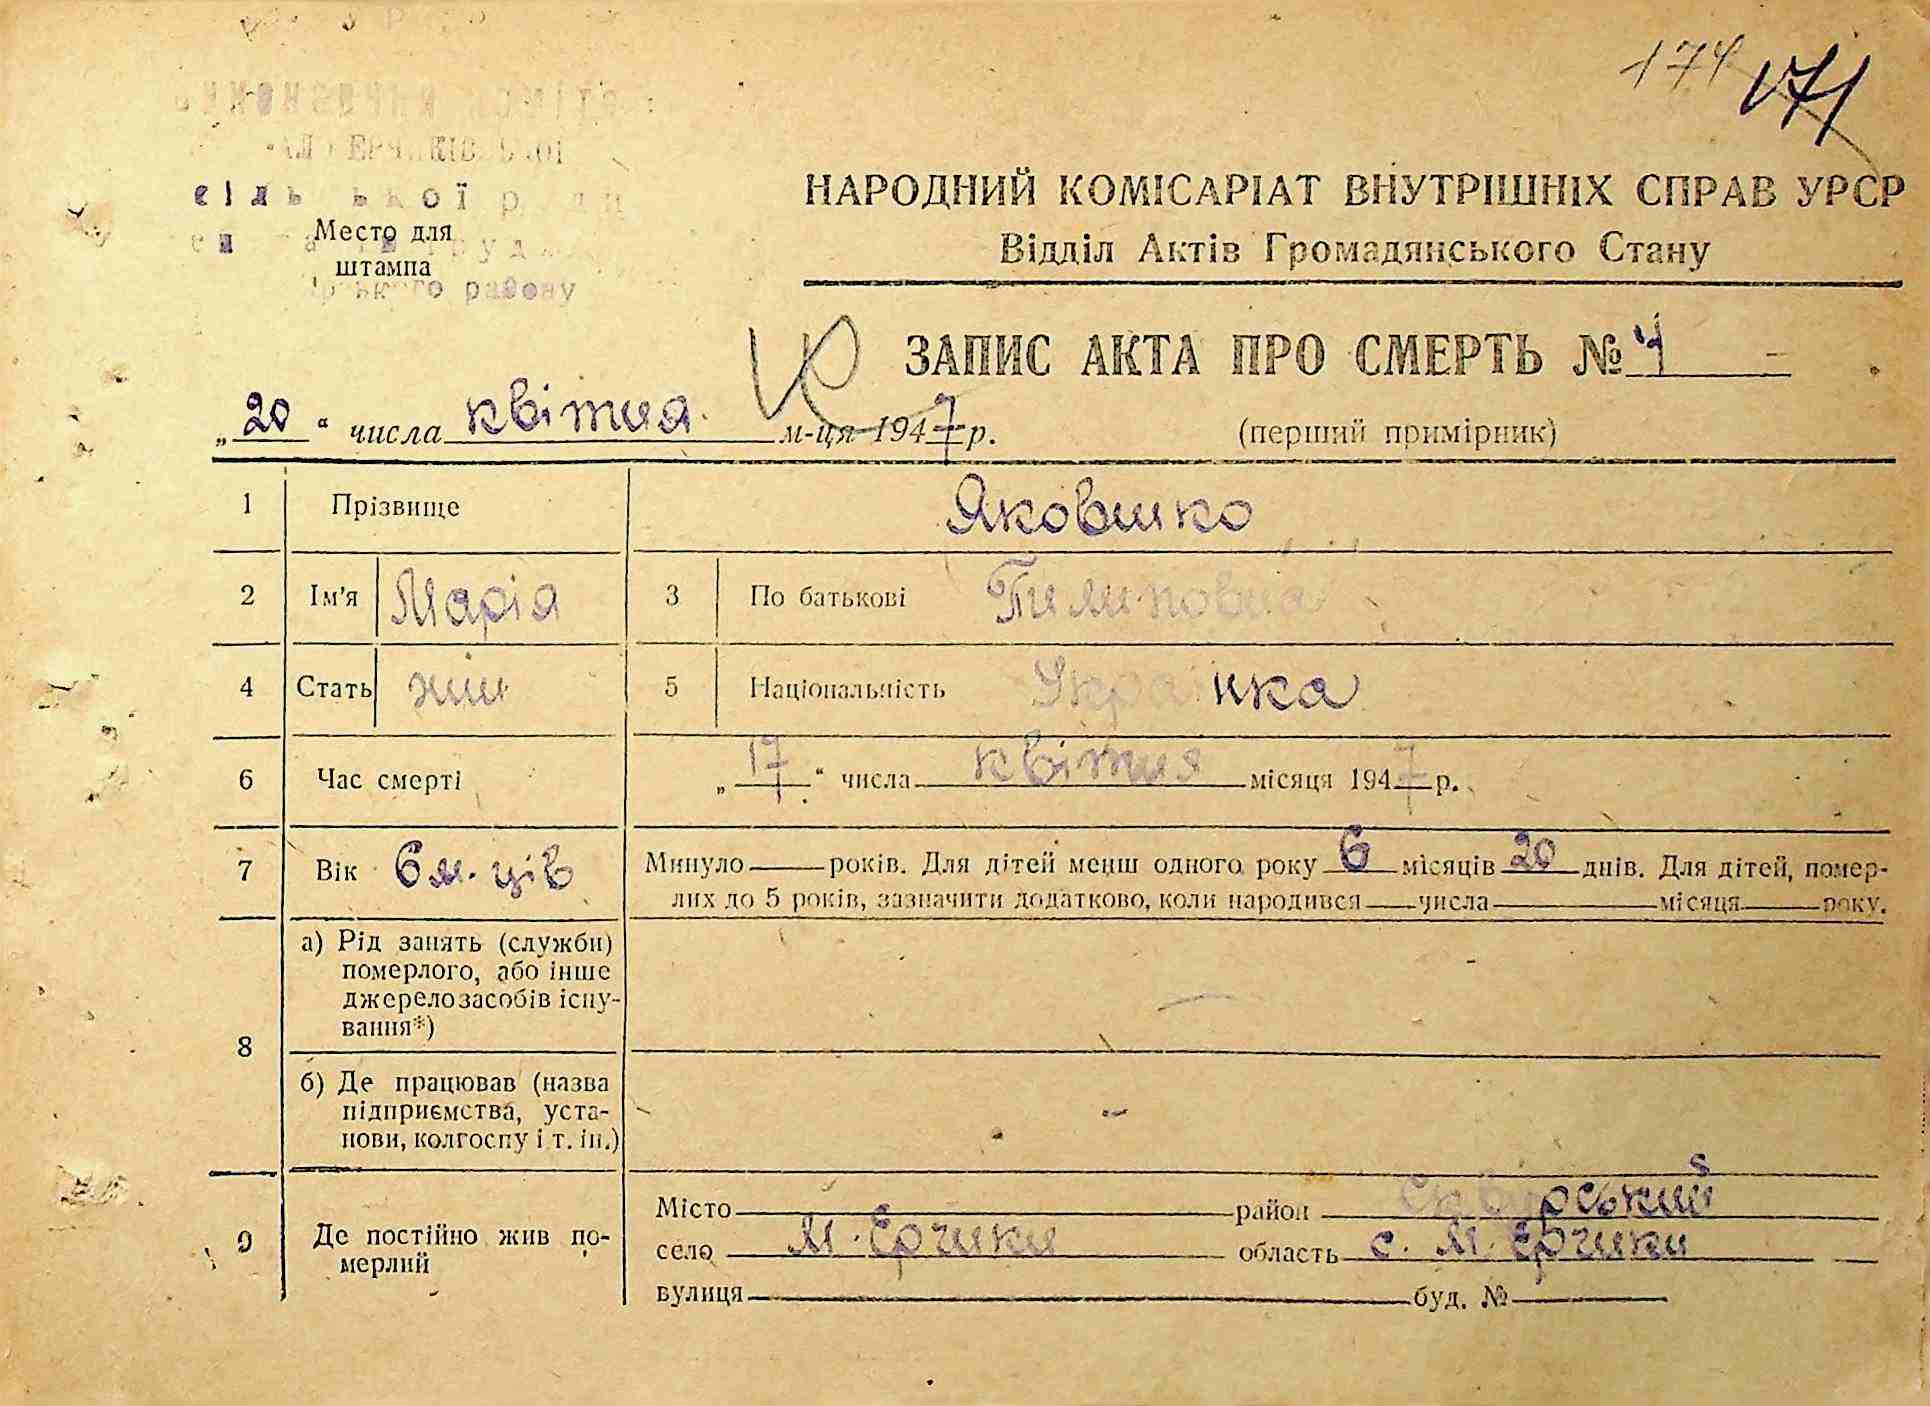 174 171
сільської ради
Место для
штампа
району
НАРОДНИЙ КОМІСАРІАТ ВНУТРІШНІХ СПРАВ УРСР
Відділ Актів Громадянського Стану
ЗАПИС АКТА ПРО СМЕРТЬ № 4
„20“ числа квітня м-ця 1947 р.
(перший примірник)
1 Прізвище Яковшко
2 Ім'я Марія 3 По батькові Пилиповна
4 Стать жін 5 Національність Українка
6 Час смерті „17“ числа квітня місяця 1947 р.
7 Вік 6 м-ців Минуло років. Для дітей менш одного року 6 місяців 20 днів. Для дітей, помер-
лих до 5 років, зазначити додатково, коли народився числа місяця року.
8 а) Рід занять (служби)
померлого, або інше
джерело засобів існу-
вання*)
б) Де працював (назва
підприємства, уста-
нови, колгоспу і т. ін.)
9 Де постійно жив по-
мерлий
Місто район Сквирський
село М. Єрчики область с. М. Єрчики
вулиця буд. №